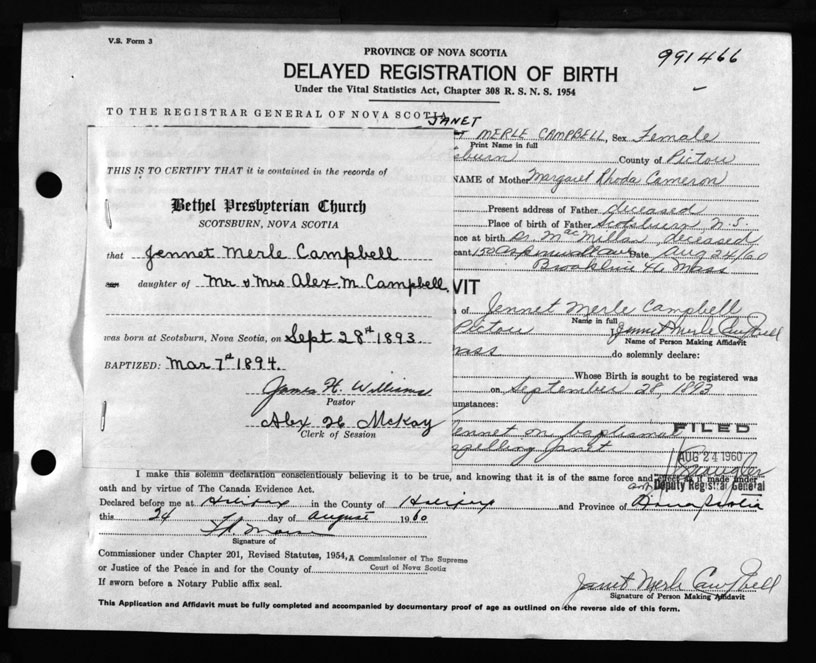 V.S. Form 3
991466
PROVINCE OF NOVA SCOTIA
DELAYED REGISTRATION OF BIRTH
Under the Vital Statistics Act, Chapter 308 R. S. N. S. 1954
TO THE REGISTRAR GENERAL OF NOVA SCOTIA
JANET
MERLE CAMPBELL, Sex Female
Print Name in full
sburn County of Pictou
NAME of Mother Margaret Rhoda Cameron
Present address of Father deceased
Place of birth of Father Scotsburn, N.S.
nce at birth Dr. MacMillan, deceased
cant 150 Date Aug 24/60
Brookline 46 Mass
VIT
of Jennet Merle Campbell
Name in full
Pictou Jennet Merle Campbell
Name of Person Making Affidavit
Mass do solemnly declare:
Whose Birth is sought to be registered was
on September 28, 1893
umstances:
Jennet on baptismal
spelling Janet
FILED
AUG 24 1960
Deputy Registrar General
THIS IS TO CERTIFY THAT it is contained in the records of
Bethel Presbyterian Church
SCOTSBURN, NOVA SCOTIA
that Jennet Merle Campbell
son daughter of Mr & Mrs Alex. M. Campbell.
was born at Scotsburn, Nova Scotia, on Sept 28th 1893.
BAPTIZED: Mar 7th 1894.
James H. Williams
Pastor
Alex McKay
Clerk of Session
I make this solemn declaration conscientiously believing it to be true, and knowing that it is of the same force and effect as if made under
oath and by virtue of The Canada Evidence Act.
Declared before me at Halifax in the County of Halifax and Province of Nova Scotia
this 24 day of August 1960
Signature of
Commissioner under Chapter 201, Revised Statutes, 1954, A Commissioner of The Supreme
or Justice of the Peace in and for the County of Court of Nova Scotia
If sworn before a Notary Public affix seal.
Janet Merle Campbell
Signature of Person Making Affidavit
This Application and Affidavit must be fully completed and accompanied by documentary proof of age as outlined on the reverse side of this form.